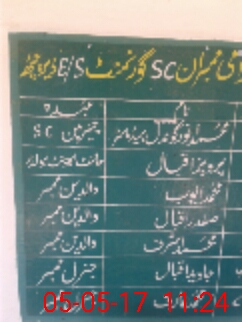 ممبران SC گورنمنٹ E/S
نام عہدہ
محمد انور گوندل ہیڈ ماسٹر چیئرمین SC
پرویز اقبال
محمد ایوب والدین ممبر
صفدر اقبال والدین ممبر
محمد اشرف والدین ممبر
جاوید اقبال جنرل ممبر
05-05-17 11:24